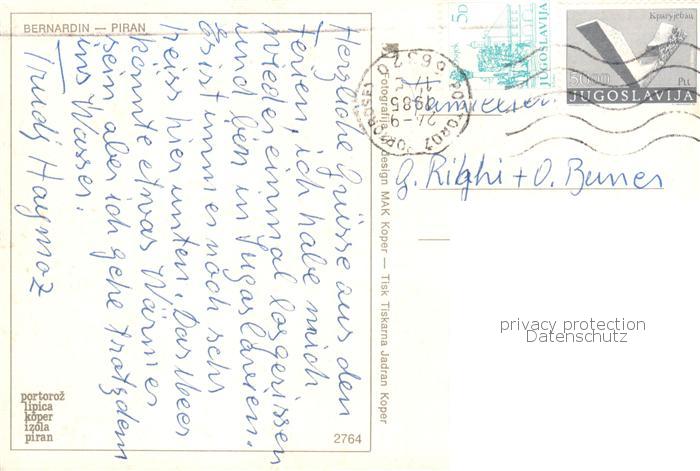 BERNARDIN — PIRAN
Herzliche Grüsse aus den
Ferien, ich habe mich
wieder einmal losgerissen
und bin in Jugoslavien.
Es ist immer noch sehr
heiss hier unten. Das Meer
könnte etwas Wärmer
sein aber ich gehe trotzdem
ins Wasser.
Trudy Haymoz
portorož
lipica
koper
izola
piran
2764
Fotografija
design MAK Koper — Tisk Tiskarna Jadran Koper
5D
JUGOSLAVIJA
Крагујевац
50.00
JUGOSLAVIJA
1985
G. Righi + O. Berner
privacy protection
Datenschutz